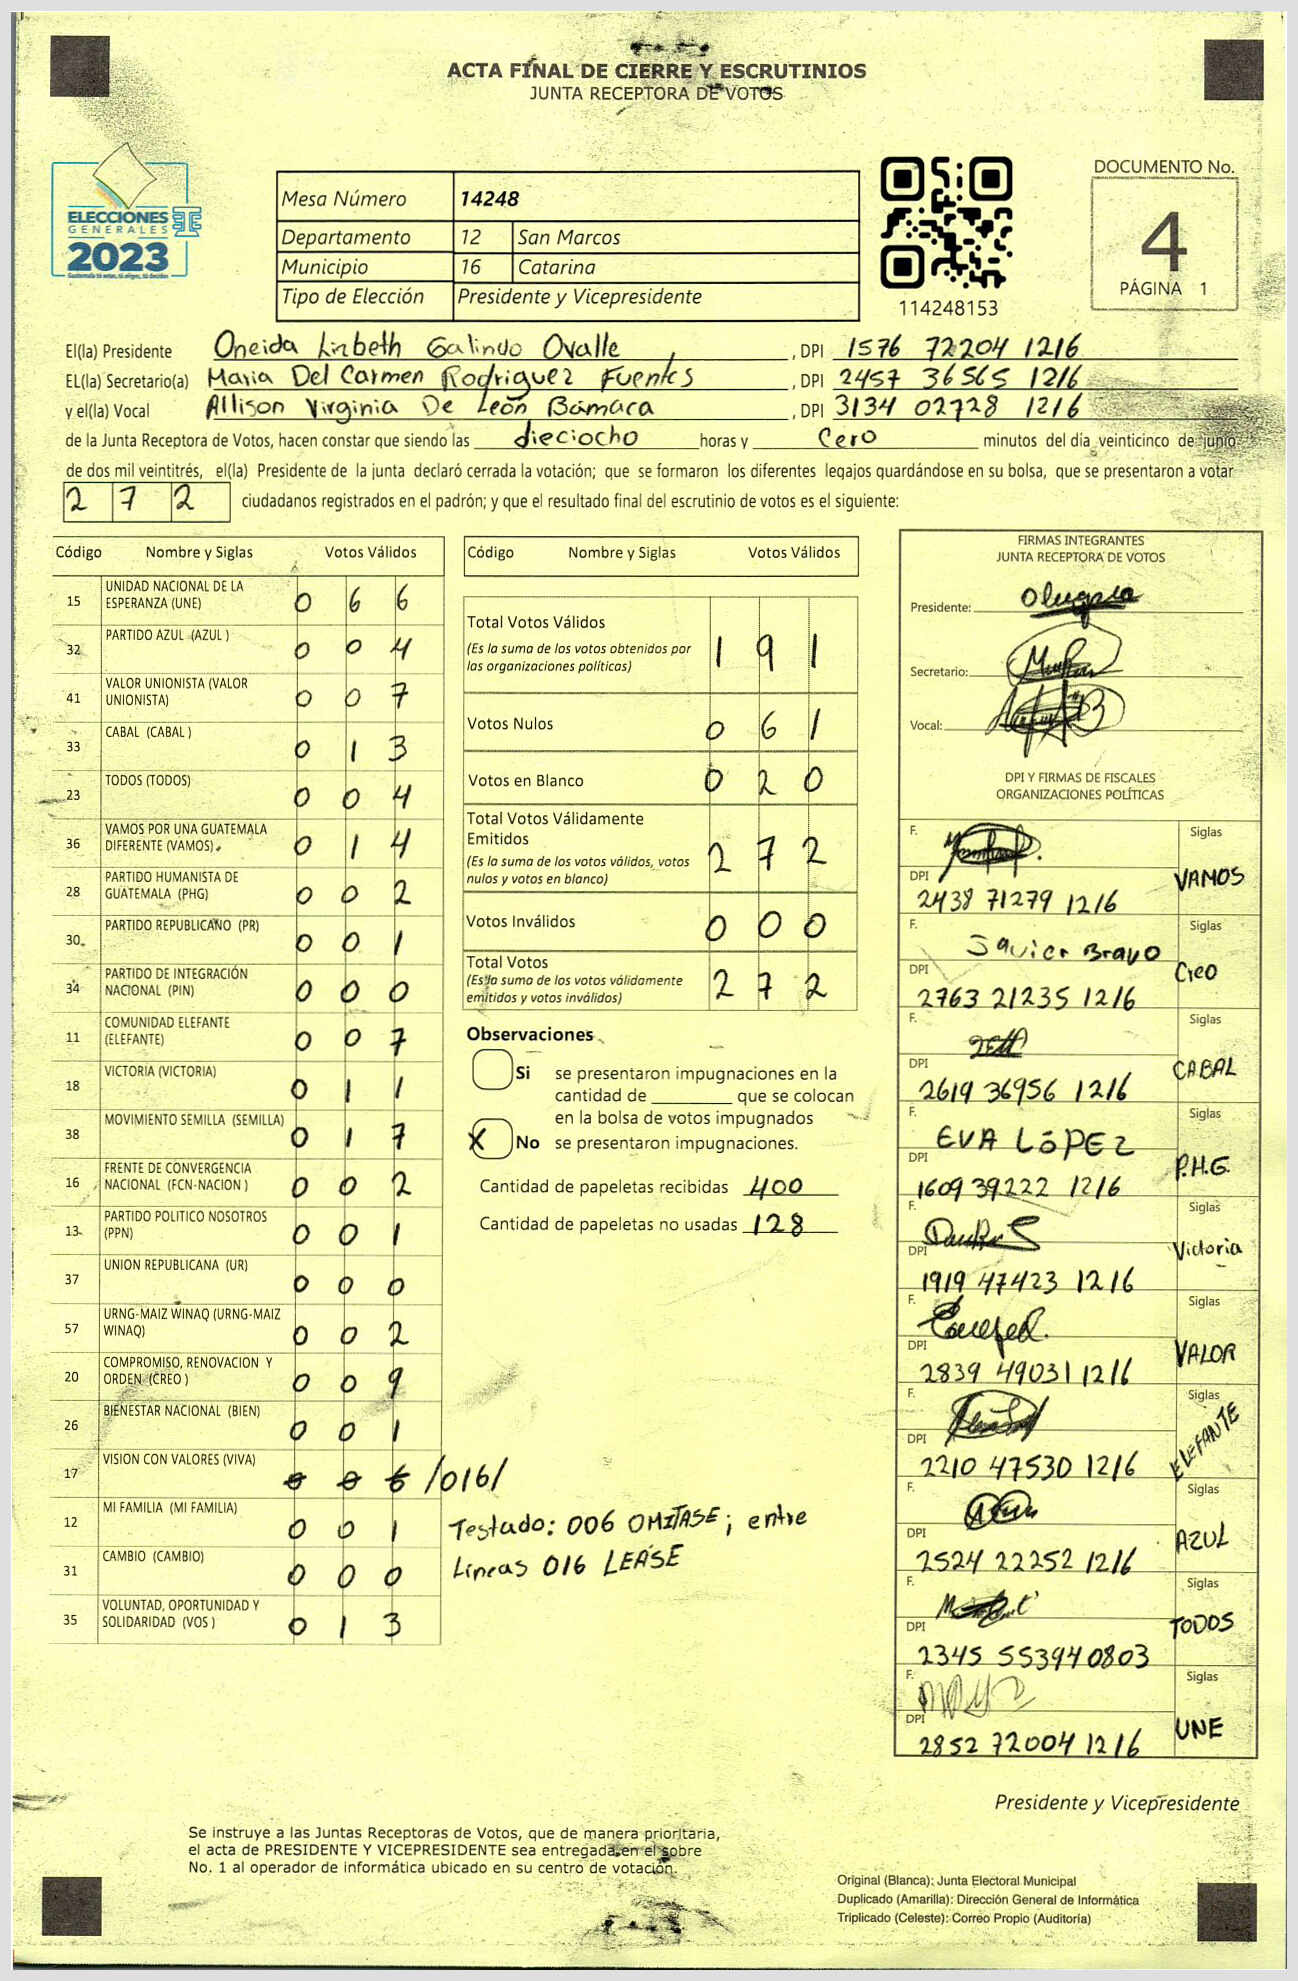 ACTA FINAL DE CIERRE Y ESCRUTINIOS
JUNTA RECEPTORA DE VOTOS
ELECCIONES
GENERALES
2023
Guatemala tú estás, tú eliges, tú decides
Mesa Número 14248
Departamento 12 San Marcos
Municipio 16 Catarina
Tipo de Elección Presidente y Vicepresidente
114248153
DOCUMENTO No.
4
PÁGINA 1
El(la) Presidente Oneida Lizbeth Galindo Ovalle, DPI 1576 72204 1216
EL(la) Secretario(a) Maria Del Carmen Rodriguez Fuentes, DPI 2457 36565 1216
y el(la) Vocal Allison Virginia De León Bámaca, DPI 3134 02728 1216
de la Junta Receptora de Votos, hacen constar que siendo las dieciocho horas y cero minutos del día veinticinco de junio
de dos mil veintitrés, el(la) Presidente de la junta declaró cerrada la votación; que se formaron los diferentes legajos guardándose en su bolsa, que se presentaron a votar
2 7 2 ciudadanos registrados en el padrón; y que el resultado final del escrutinio de votos es el siguiente:
Código Nombre y Siglas Votos Válidos
15 UNIDAD NACIONAL DE LA ESPERANZA (UNE) 0 6 6
32 PARTIDO AZUL (AZUL ) 0 0 4
41 VALOR UNIONISTA (VALOR UNIONISTA) 0 0 7
33 CABAL (CABAL ) 0 1 3
23 TODOS (TODOS) 0 0 4
36 VAMOS POR UNA GUATEMALA DIFERENTE (VAMOS) 0 1 4
28 PARTIDO HUMANISTA DE GUATEMALA (PHG) 0 0 2
30 PARTIDO REPUBLICANO (PR) 0 0 1
34 PARTIDO DE INTEGRACIÓN NACIONAL (PIN) 0 0 0
11 COMUNIDAD ELEFANTE (ELEFANTE) 0 0 7
18 VICTORIA (VICTORIA) 0 1 1
38 MOVIMIENTO SEMILLA (SEMILLA) 0 1 7
16 FRENTE DE CONVERGENCIA NACIONAL (FCN-NACION ) 0 0 2
13 PARTIDO POLITICO NOSOTROS (PPN) 0 0 1
37 UNION REPUBLICANA (UR) 0 0 0
57 URNG-MAIZ WINAQ (URNG-MAIZ WINAQ) 0 0 2
20 COMPROMISO, RENOVACION Y ORDEN (CREO ) 0 0 9
26 BIENESTAR NACIONAL (BIEN) 0 0 1
17 VISION CON VALORES (VIVA) 0 0 6 /016/
12 MI FAMILIA (MI FAMILIA) 0 0 1
31 CAMBIO (CAMBIO) 0 0 0
35 VOLUNTAD, OPORTUNIDAD Y SOLIDARIDAD (VOS ) 0 1 3
Testado: 006 OMITASE; entre
Líneas 016 LEASE
Código Nombre y Siglas Votos Válidos
Total Votos Válidos 1 9 1
(Es la suma de los votos obtenidos por
las organizaciones políticas)
Votos Nulos 0 6 1
Votos en Blanco 0 2 0
Total Votos Válidamente
Emitidos 2 7 2
(Es la suma de los votos válidos, votos
nulos y votos en blanco)
Votos Inválidos 0 0 0
Total Votos 2 7 2
(Es la suma de los votos válidamente
emitidos y votos inválidos)
Observaciones
Si se presentaron impugnaciones en la
cantidad de ________ que se colocan
en la bolsa de votos impugnados
X No se presentaron impugnaciones.
Cantidad de papeletas recibidas 400
Cantidad de papeletas no usadas 128
FIRMAS INTEGRANTES
JUNTA RECEPTORA DE VOTOS
Presidente:
Secretario:
Vocal:
DPI Y FIRMAS DE FISCALES
ORGANIZACIONES POLÍTICAS
F. Siglas
DPI VAMOS
2438 71279 1216
F. Javier Bravo Siglas
DPI Creo
2763 21235 1216
F. Siglas
DPI CABAL
2619 36956 1216
F. EVA LÓPEZ Siglas
DPI P.H.G.
1609 39222 1216
F. Siglas
DPI Victoria
1919 47423 1216
F. Siglas
DPI VALOR
2839 49031 1216
F. Siglas
DPI ELEFANTE
2210 47530 1216
F. Siglas
DPI AZUL
2524 22252 1216
F. Siglas
DPI TODOS
2345 55394 0803
F. Siglas
DPI UNE
2852 72004 1216
Presidente y Vicepresidente
Se instruye a las Juntas Receptoras de Votos, que de manera prioritaria,
el acta de PRESIDENTE Y VICEPRESIDENTE sea entregada en el sobre
No. 1 al operador de informática ubicado en su centro de votación.
Original (Blanca): Junta Electoral Municipal
Duplicado (Amarilla): Dirección General de Informática
Triplicado (Celeste): Correo Propio (Auditoría)